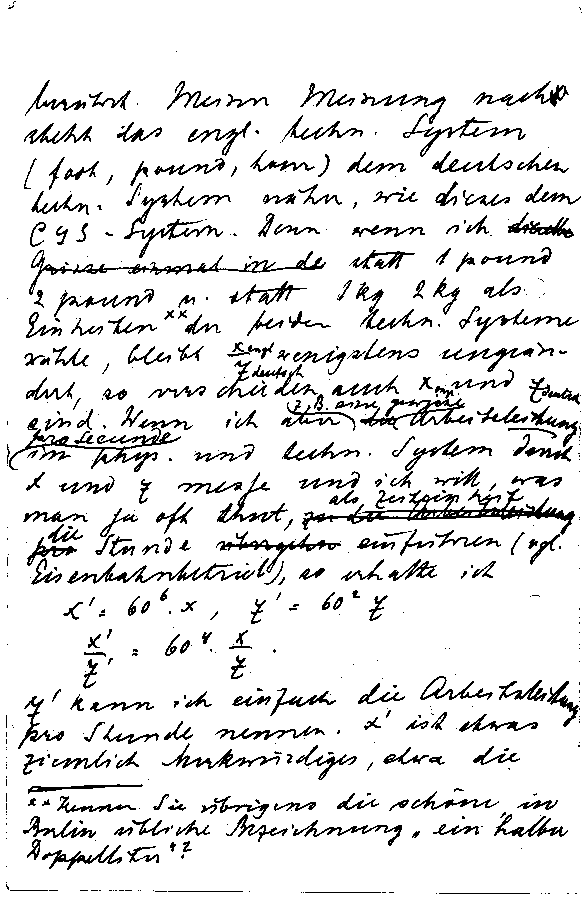 berührt. Meiner Meinung nach
steht das engl. techn. System
(foot, pound, hour) dem deutschen
techn. System näher, wie dieses dem
CGS-System. Denn wenn ich dieselbe
Grösse einmal in de statt 1 pound
2 pound u. statt 1 kg 2 kg als
Einheiten ** der beiden techn. Systeme
wähle, bleibt x engl / y deutsch wenigstens ungeän-
dert, so verschieden auch x engl. und y deutsch
sind. Wenn ich aber z.B. eine gewisse die Arbeitsleistung
pro Secunde
im phys. und techn. System durch
x und y messe und ich will, was
man ja oft thut, als Zeiteinheit
die Stunde übergehen einführen (vgl.
Eisenbahnbetrieb), so erhalte ich
x' = 60⁶. x, y' = 60² y
x'/y' = 60⁴. x/y.
y' kann ich einfach die Arbeitsleistung
pro Stunde nennen. x' ist etwas
ziemlich Merkwürdiges, etwa die
** Kennen Sie übrigens die schöne, in
Berlin übliche Bezeichnung „ein halber
Doppelliter“?